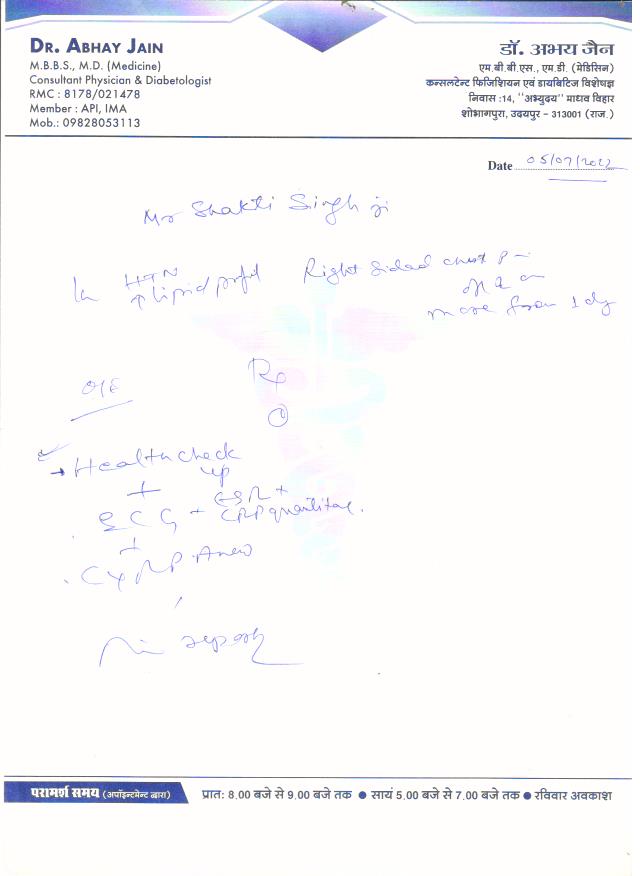 DR. ABHAY JAIN
M.B.B.S., M.D. (Medicine)
Consultant Physician & Diabetologist
RMC : 8178/021478
Member : API, IMA
Mob.: 09828053113
डॉ. अभय जैन
एम.बी.बी.एस., एम.डी. (मेडिसिन)
कन्सलटेन्ट फिजिशियन एवं डायबिटिज विशेषज्ञ
निवास :14, "अभ्युदय" माधव विहार
शोभागपुरा, उदयपुर - 313001 (राज.)
Date 05/07/2022
Mr Shakti Singh ji
HTN
↑ Lipid profil
Right sided chest P
more from 1 day
O/E
Rx
①
→ Health check
up
+
ECG + ESR +
CRP quantitative.
+
. CXR P-A view
परामर्श समय (अपॉइन्टमेन्ट द्वारा)
प्रात: 8.00 बजे से 9.00 बजे तक ● सायं 5.00 बजे से 7.00 बजे तक ● रविवार अवकाश